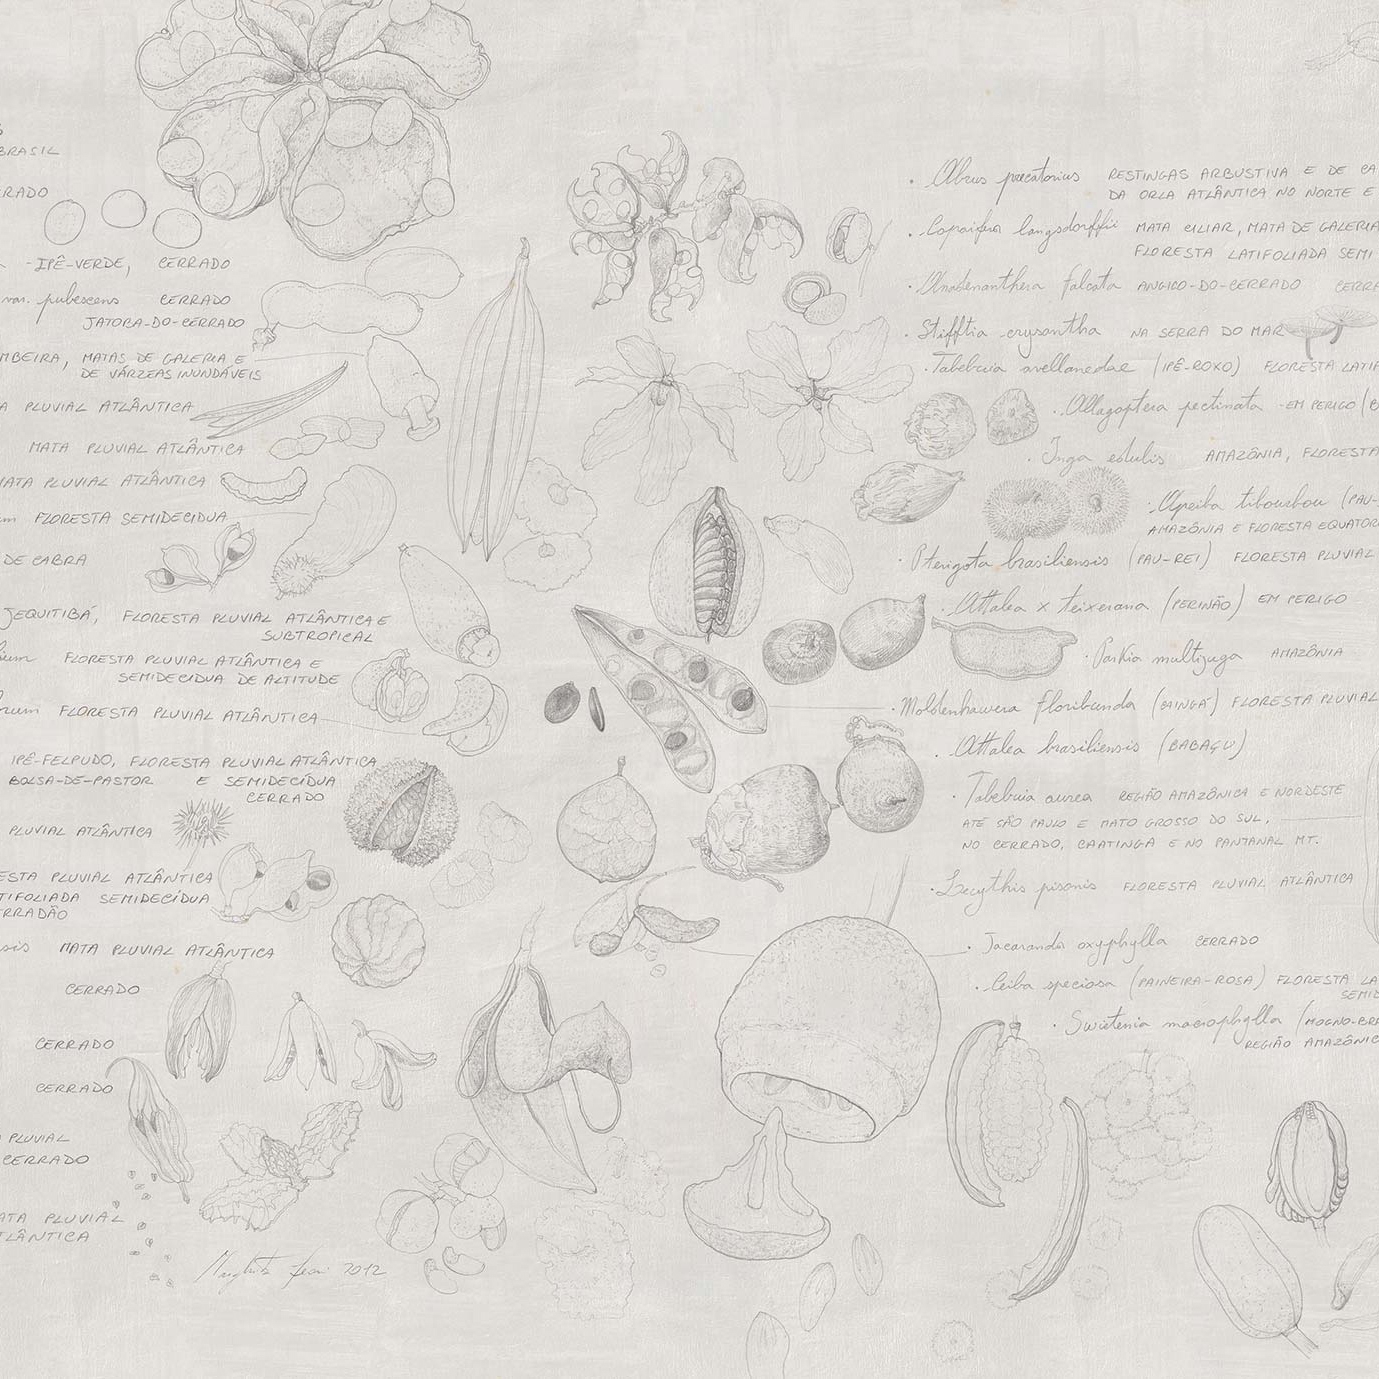 BRASIL
RRADO
-IPÊ-VERDE, CERRADO
var. pubescens CERRADO
JATOBA-DO-CERRADO
MBEIRA, MATAS DE GALERIA E
DE VÁRZEAS INUNDÁVEIS
A PLUVIAL ATLÂNTICA
MATA PLUVIAL ATLÂNTICA
MATA PLUVIAL ATLÂNTICA
um FLORESTA SEMIDECIDUA
DE CABRA
JEQUITIBÁ, FLORESTA PLUVIAL ATLÂNTICA E
SUBTROPICAL
FLORESTA PLUVIAL ATLÂNTICA E
SEMIDECIDUA DE ALTITUDE
rum FLORESTA PLUVIAL ATLÂNTICA
IPÊ-FELPUDO, FLORESTA PLUVIAL ATLÂNTICA
BOLSA-DE-PASTOR E SEMIDECÍDUA
CERRADO
PLUVIAL ATLÂNTICA
ESTA PLUVIAL ATLÂNTICA
TIFOLIADA SEMIDECÍDUA
ERRADÃO
sis MATA PLUVIAL ATLÂNTICA
CERRADO
CERRADO
CERRADO
PLUVIAL
CERRADO
ATA PLUVIAL
TLÂNTICA
2012
. Abrus precatorius RESTINGAS ARBUSTIVA E DE CA
DA ORLA ATLÂNTICA NO NORTE E
. Copaifera langsdorffii MATA CILIAR, MATA DE GALERIA
FLORESTA LATIFOLIADA SEMI
. Anadenanthera falcata ANGICO-DO-CERRADO CERRA
. Stifftia crysantha NA SERRA DO MAR
. Tabebuia avellanedae (IPÊ-ROXO) FLORESTA LATIF
. Allagoptera pectinata -EM PERIGO
. Inga edulis AMAZÔNIA, FLORESTA
. Apeiba tibourbou (PAU-
AMAZÔNIA E FLORESTA EQUATOR
. Pterigota brasiliensis (PAU-REI) FLORESTA PLUVIAL
. Attalea x teixerana (PERINÃO) EM PERIGO
. Parkia multijuga AMAZÔNIA
. Moldenhawera floribunda (GUINGÁ) FLORESTA PLUVIAL
. Attalea brasiliensis (BABAÇU)
. Tabebuia aurea REGIÃO AMAZÔNICA E NORDESTE
ATÉ SÃO PAULO E MATO GROSSO DO SUL,
NO CERRADO, CAATINGA E NO PANTANAL MT.
. Lecythis pisonis FLORESTA PLUVIAL ATLÂNTICA
. Jacaranda oxyphylla CERRADO
. Ceiba speciosa (PAINEIRA-ROSA) FLORESTA LA
SEMID
. Swietenia macrophylla (MOGNO-BR
REGIÃO AMAZÔNIC